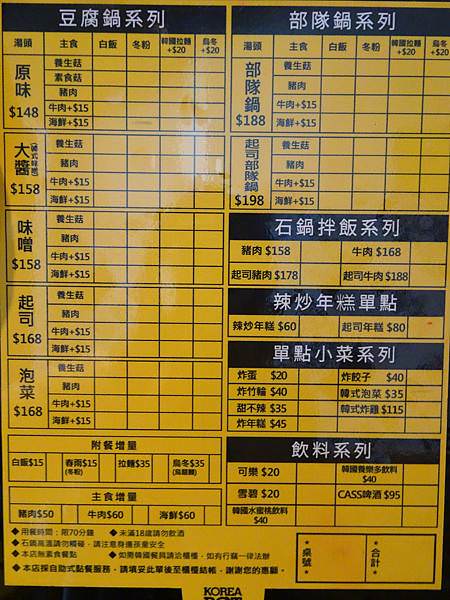 豆腐鍋系列
湯頭 主食 白飯 冬粉 韓國拉麵+$20 烏冬+$20
原味 $148
養生菇
素食菇
豬肉
牛肉+$15
海鮮+$15
大醬(韓式味噌) $158
養生菇
豬肉
牛肉+$15
海鮮+$15
味噌 $158
養生菇
豬肉
牛肉+$15
海鮮+$15
起司 $168
養生菇
豬肉
牛肉+$15
海鮮+$15
泡菜 $168
養生菇
豬肉
牛肉+$15
海鮮+$15
附餐增量
白飯$15 春雨$15(冬粉) 拉麵$35 烏冬$35(烏龍麵)
主食增量
豬肉$50 牛肉$60 海鮮$60
部隊鍋系列
湯頭 主食 白飯 冬粉 韓國拉麵+$20 烏冬+$20
部隊鍋 $188
養生菇
豬肉
牛肉+$15
海鮮+$15
起司部隊鍋 $198
養生菇
豬肉
牛肉+$15
海鮮+$15
石鍋拌飯系列
豬肉 $158 牛肉 $168
起司豬肉 $178 起司牛肉 $188
辣炒年糕單點
辣炒年糕 $60 起司年糕 $80
單點小菜系列
炸蛋 $20 炸餃子 $40
炸竹輪 $40 韓式泡菜 $35
甜不辣 $35 韓式炸雞 $115
炸年糕 $45
飲料系列
可樂 $20 韓國養樂多飲料 $40
雪碧 $20 CASS啤酒 $95
韓國水蜜桃飲料 $40
◆用餐時間：限70分鐘 ◆未滿18歲請勿飲酒
◆石鍋高溫請勿觸碰，請注意身邊孩童安全
◆本店無素食餐點 ◆如需韓國餐具請洽櫃檯，如有行竊一律法辦
◆本店採自助式點餐服務，請填妥此單後至櫃檯結帳，謝謝您的惠顧。
桌號： 合計：
KOREA
POT